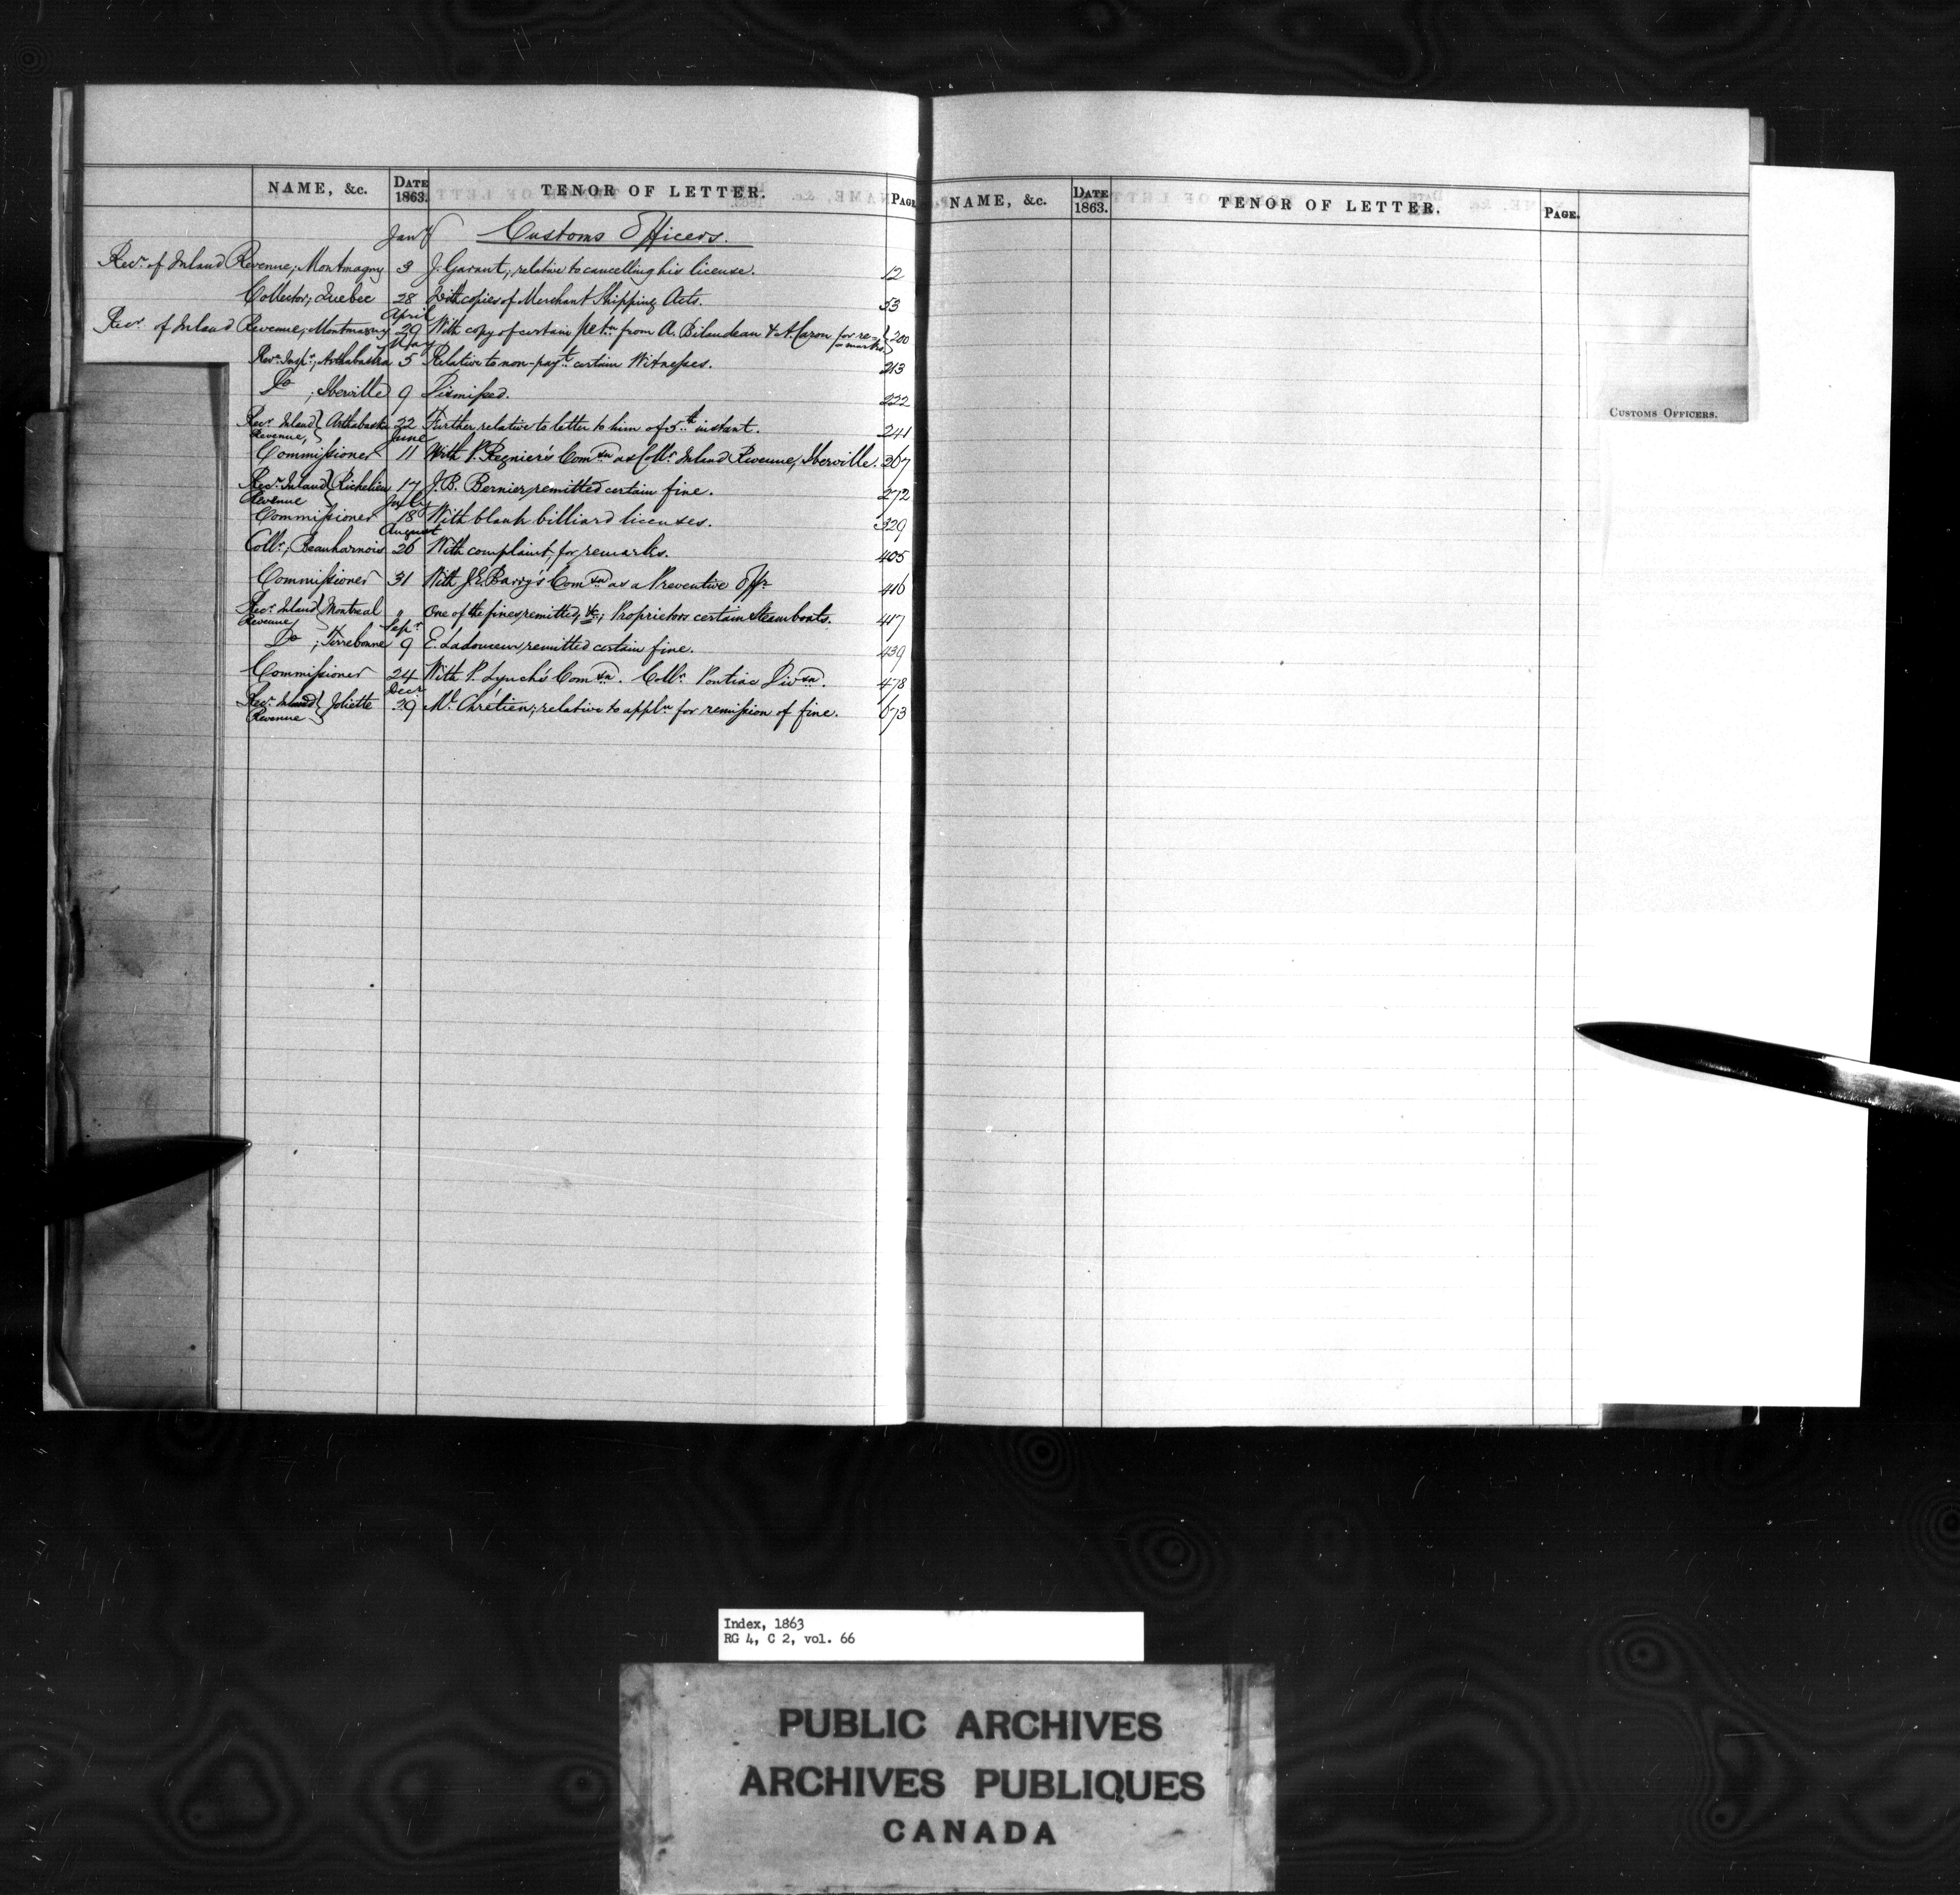 NAME, &c. DATE 1863. TENOR OF LETTER. PAGE
Jany Customs Officers.
Revr. of Inland Revenue; Montmagny 3 J. Garant; relative to cancelling his license. 12
Collector; Quebec 28 With copies of Merchant Shipping Acts. 53
April
Revr. of Inland Revenue; Montmagny 29 With copy of certain petn from A. Bilaudeau & A. Caron for re- 200
marks
May
Revn. Inspr; Arthabaska 5 Relative to non-payt. certain Witnesses. 213
Do ; Iberville 9 Dismissed. 222
Revr. Inland Arthabaska 22 Further relative to letter to him of 5th instant. 241
Revenue, June
Commissioner 11 With P. Regnier's Comsn as Collr. Inland Revenue, Iberville. 267
Revr. Inland Richelieu 17 J. B. Bernier, remitted certain fine. 272
Revenue July
Commissioner 18 With blank billiard licenses. 329
August
Collr; Beauharnois 26 With complaint, for remarks. 405
Commissioner 31 With J.E. Barry's Comsn as a Preventive Offr 416
Revr. Inland Montreal " One of the fines remitted, &c; Proprietors certain Steamboats. 417
Revenue Sepr
Do ; Terrebonne 9 E. Ladouceur, remitted certain fine. 439
Commissioner 24 With P. Lynch's Comsn. Collr. Pontiac Divsn. 478
Decr
Revr. Inland Joliette 29 Mr. Chrétien; relative to appln for remission of fine. 673
Revenue
NAME, &c. DATE 1863. TENOR OF LETTER. PAGE.
CUSTOMS OFFICERS.
Index, 1863
RG 4, C 2, vol. 66
PUBLIC ARCHIVES
ARCHIVES PUBLIQUES
CANADA